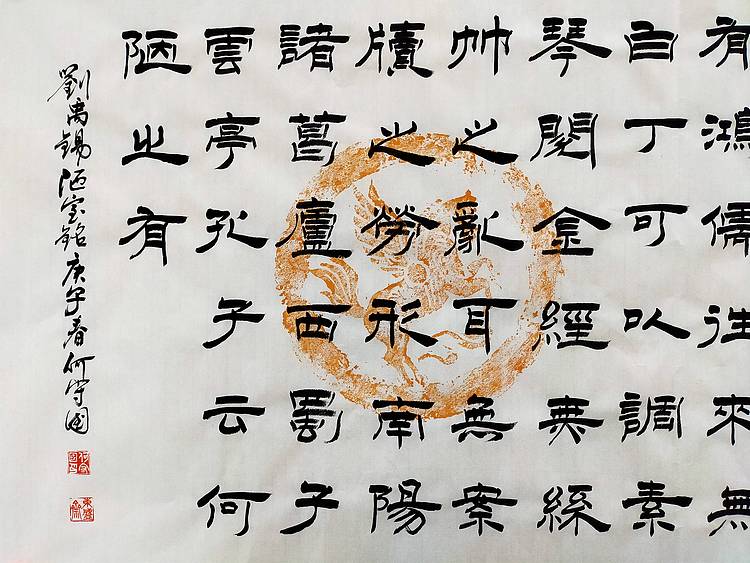 有鴻儒往來無
白丁可以調素
琴閱金經無絲
竹之亂耳無案
牘之勞形南陽
諸葛廬西蜀子
雲亭孔子云何
陋之有
劉禹錫陋室銘庚子春何守国